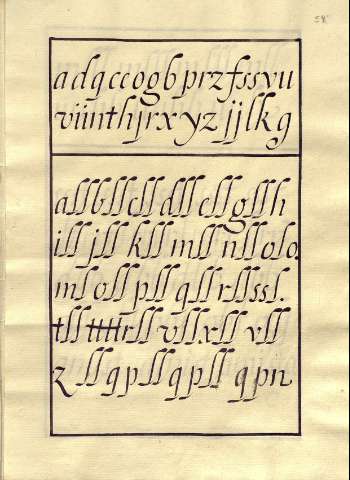 58
a d q c e o g b p r z f s s v u
v i i n t h j r x y z j j l k g
a ſſ b ſſ c ſſ d ſſ e ſſ g ſſ h
i ſſ j ſſ k ſſ m ſſ n ſſ o l o.
m ſ o ſſ p ſſ q ſſ r ſſ s s ſ.
t ſſ t t t t r ſſ v ſſ x ſſ v ſſ
z ſſ q p ſſ q p ſſ q p n